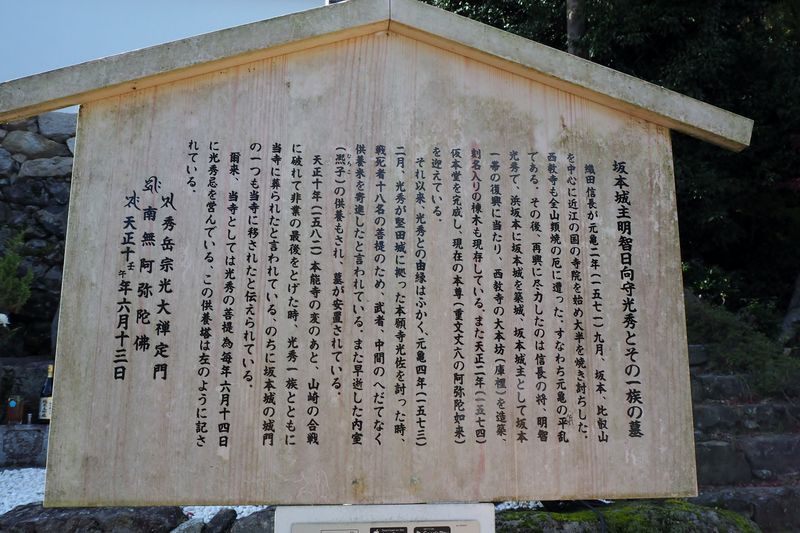 坂本城主明智日向守光秀とその一族の墓
織田信長が元亀二年(一五七一)九月、坂本、比叡山
を中心に近江の国の寺院を始め大半を焼き討ちした。
西教寺も全山類焼の厄に遭った。すなわち元亀の平乱
である。その後、再興に尽力したのは信長の将、明智
光秀で、浜坂本に坂本城を築城、坂本城主として坂本
一帯の復興に当たり、西教寺の大本坊(庫裡)を造築、
刻名入りの棟木も現存している。また天正二年(一五七四)
仮本堂を完成し、現在の本尊(重文丈六の阿弥陀如来)
を迎えている。
それ以来、光秀との由縁はふかく、元亀四年(一五七三)
二月、光秀が堅田城に拠った本願寺光佐を討った時、
戦死者十八名の菩提のため、武者、中間のへだてなく
供養米を寄進したと言われている。また早逝した内室
(熙子)の供養もされ、墓が安置されている。
天正十年(一五八二)本能寺の変のあと、山崎の合戦
に破れて非業の最後をとげた時、光秀一族とともに
当寺に葬られたと言われている、のちに坂本城の城門
の一つも当寺に移されたと伝えられている。
爾来、当寺としては光秀の菩提為毎年六月十四日
に光秀忌を営んでいる。この供養塔は左のように記さ
れている。
秀岳宗光大禅定門
南無阿弥陀佛
天正十壬午年六月十三日